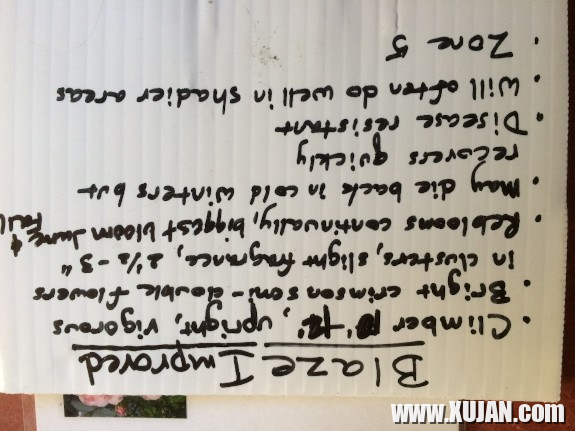 Blaze Improved
• Climber 12', upright, vigorous
• Bright crimson semi-double flowers
in clusters, slight fragrance, 2½-3"
• Reblooms continually, biggest bloom June & Fall
• May die back in cold winters but
recovers quickly
• Disease resistant
• Will often do well in shadier areas
• Zone 5
www.XUJAN.com